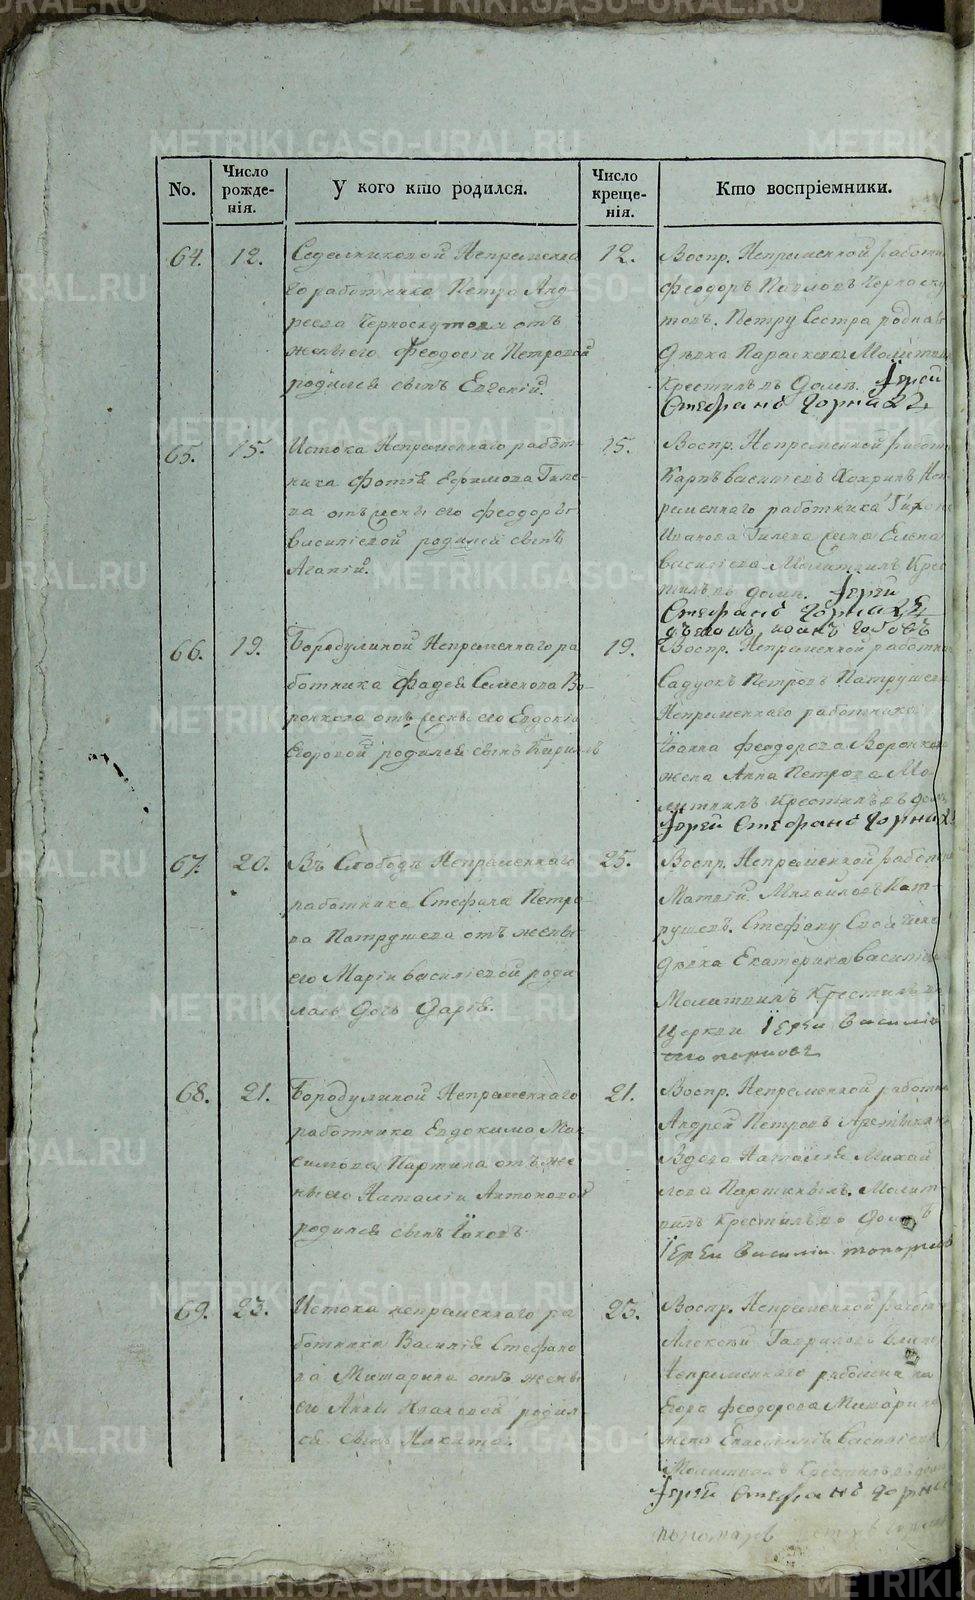 No.
Число рожде-
нія.
У кого кто родился.
Число креще-
нія.
Кто воспріемники.
64. 12.
Седелниковой Непременна
го работника Петра Анд-
реева Черноскутова отъ
жены его Феодосіи Петровой
родился сынъ Евгеній.
12.
Воспр. Непременной работни
Феодоръ Павловъ Черноску
товъ. Петру Сестра родная
Девка Параскева. Молитвил
Крестилъ въ Доме. Іерей
Стефанъ Горных
65. 15.
Истока Непременнаго работ-
ника Фотія Ефимова Гиле-
ва отъ жены его Феодоры
Василіевой родился сынъ
Агапій.
15.
Воспр. Непременной работн
Карпъ Василіевъ Хохринъ Неп
ременнаго работника Тихона
Иванова Гилева жена Елена
Василіева Молитвилъ Крес
тилъ въ доме. Іерей
Стефанъ Горных
66. 19.
Бородулиной Непременнаго ра
ботника Фадея Семенова Во-
ронкова отъ жены его Евдокіи
Егоровой родился сынъ Кириллъ
19.
Воспр. Непременной работни
Садокъ Петровъ Патрушевъ
Непременнаго работника
Іоанна Феодорова Воронкова
жена Анна Петрова Мо-
литвилъ Крестилъ въ доме
Іерей Стефанъ Горных
67. 20.
Въ Слободе Непременнаго
работника Стефана Петро-
ва Патрушева отъ жены
его Маріи Василіевой роди
лась дочь Дарія.
25.
Воспр. Непременной работн
Матвій Михайловъ Пат-
рушевъ. Стефану Свойчена
Девка Екатерина Василіева
Молитвилъ Крестилъ въ
Церкви Іерей Василій
Топорковъ
68. 21.
Бородулиной Непременнаго
работника Евдокима Мак
симова Партина отъ же-
ны его Наталіи Антоновой
родился сынъ Іаковъ.
21.
Воспр. Непременной работни
Андрей Петровъ
Вдова Наталія Михай
лова Партиныхъ. Молит
вилъ Крестилъ въ доме
Іерей Василій Топорков
69. 23.
Истока непременнаго ра
ботника Василія Стефано
ва Митарина отъ жены
его Анны Исаковой родил-
ся сынъ Никита.
23.
Воспр. Непременной работн
Алексей Гавриловъ
Непременнаго работника
Егора Феодорова Митарина
жена Василіева
Молитвилъ Крестилъ въ доме
Іерей Стефанъ Горных
пономарь
METRIKI.GASO-URAL.RU